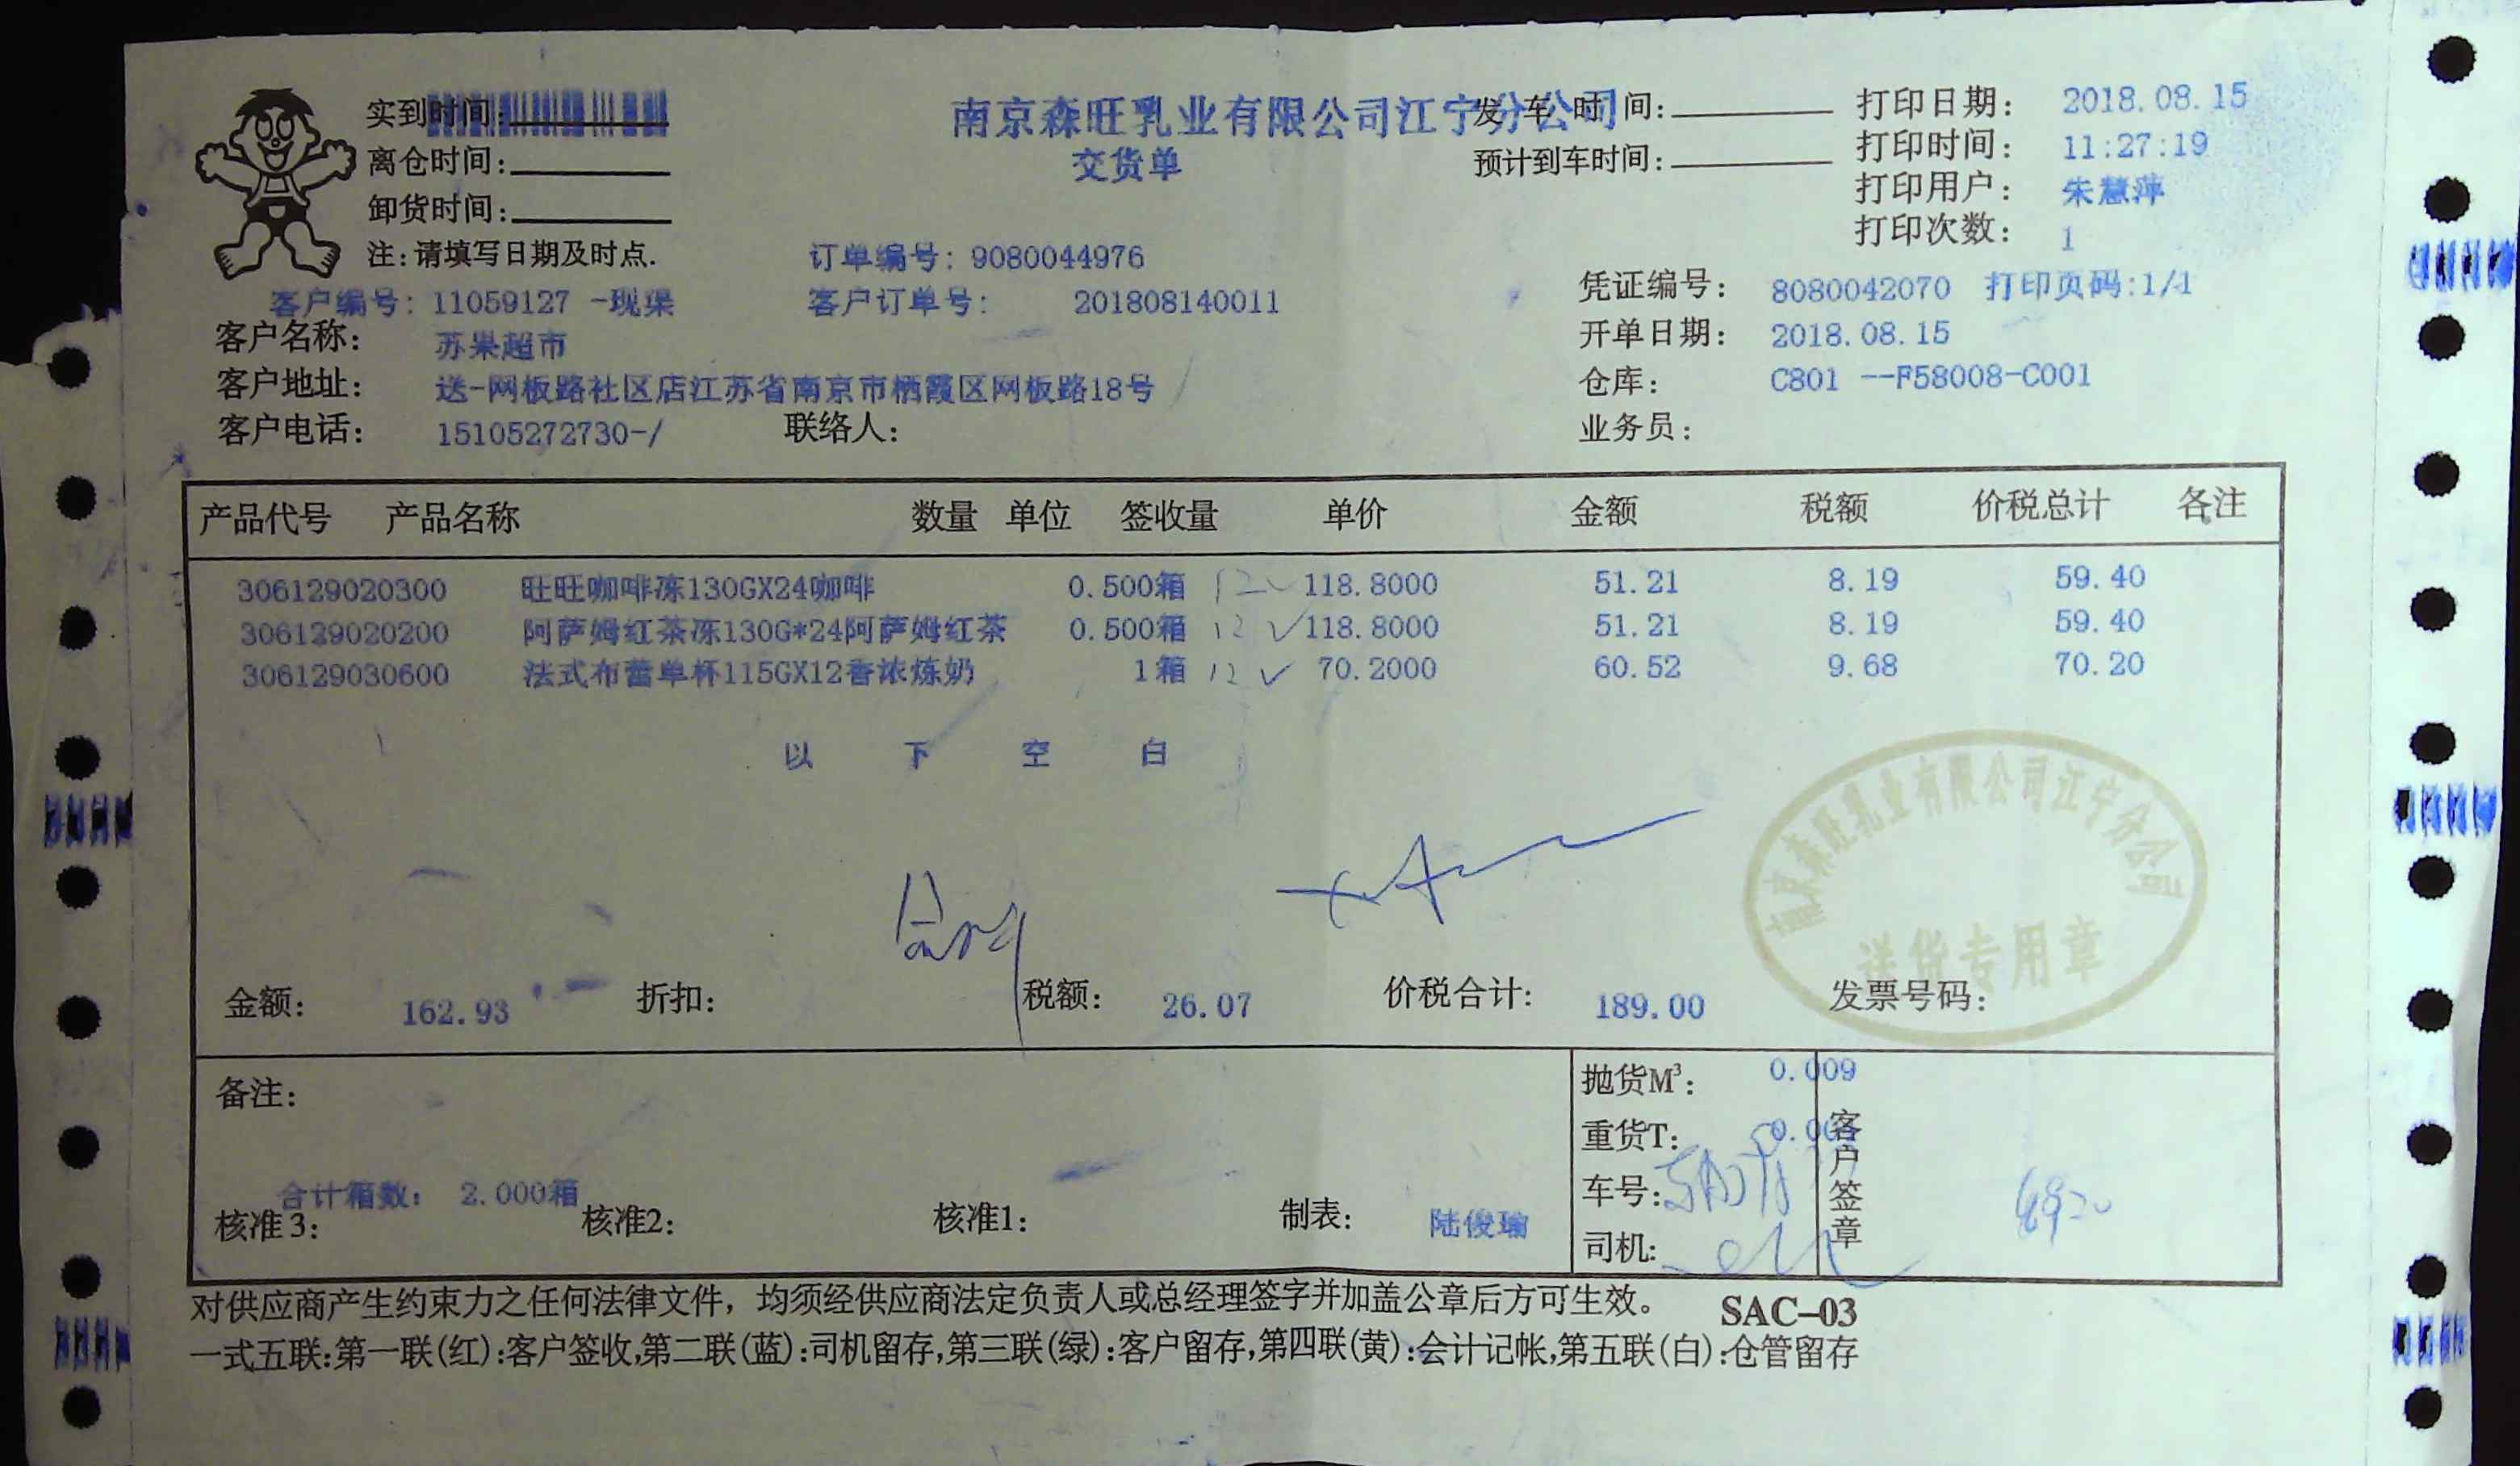 实到时间:
南京森旺乳业有限公司江宁分公司
发车时间:
打印日期: 2018.08.15
离仓时间:
交货单
预计到车时间:
打印时间: 11:27:19
卸货时间:
打印用户: 朱慧萍
注:请填写日期及时点.
打印次数: 1
订单编号: 9080044976
客户编号: 11059127 -现渠
客户订单号: 201808140011
凭证编号: 8080042070 打印页码:1/1
客户名称: 苏果超市
开单日期: 2018.08.15
客户地址: 送-网板路社区店江苏省南京市栖霞区网板路18号
仓库: C801 --F58008-C001
客户电话: 15105272730-/ 联络人:
业务员:
产品代号 产品名称 数量 单位 签收量 单价 金额 税额 价税总计 各注
306129020300 旺旺咖啡冻130GX24咖啡 0.500箱 12 118.8000 51.21 8.19 59.40
306129020200 阿萨姆红茶冻130G*24阿萨姆红茶 0.500箱 12 118.8000 51.21 8.19 59.40
306129030600 法式布蕾单杯115GX12香浓炼奶 1箱 12 70.2000 60.52 9.68 70.20
以下空白
南京森旺乳业有限公司江宁分公司
送货专用章
金额: 162.93 折扣: 税额: 26.07 价税合计: 189.00 发票号码:
备注:
抛货M³: 0.009
重货T:
车号:
司机:
客户签章
合计箱数: 2.000箱
核准3: 核准2: 核准1: 制表: 陆俊瑜
对供应商产生约束力之任何法律文件，均须经供应商法定负责人或总经理签字并加盖公章后方可生效。 SAC-03
一式五联:第一联(红):客户签收,第二联(蓝):司机留存,第三联(绿):客户留存,第四联(黄):会计记帐,第五联(白):仓管留存